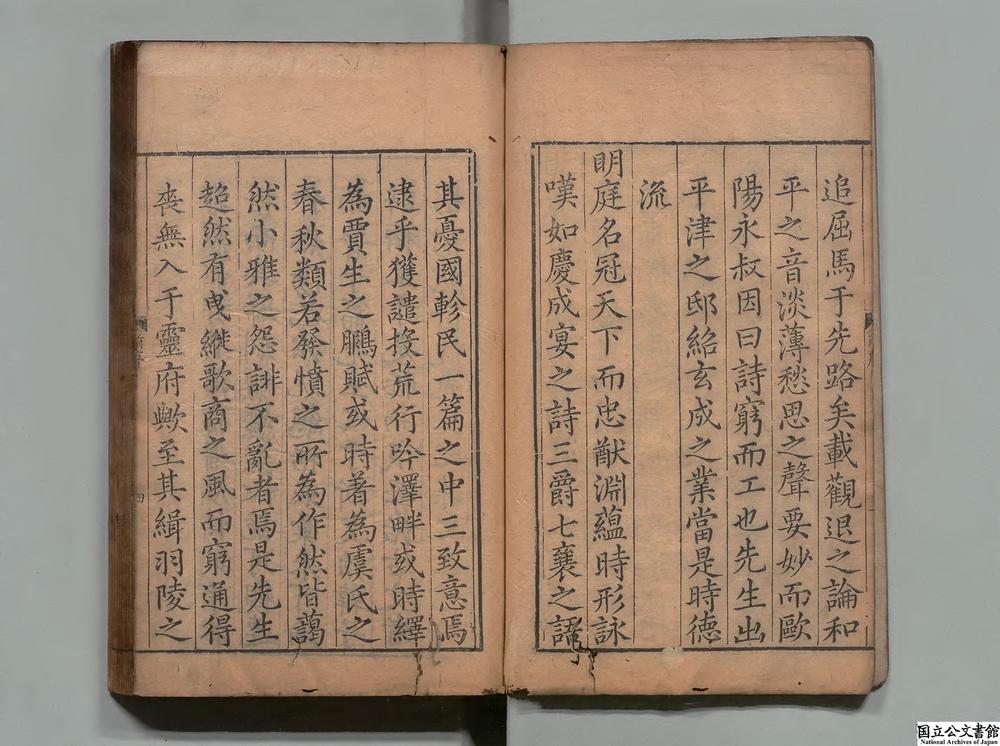 追屈馬于先路矣載觀退之論和
平之音淡薄愁思之聲要妙而歐
陽永叔因曰詩窮而工也先生出
平津之邸紹玄成之業當是時德
流
明庭名冠天下而忠猷淵蘊時形詠
嘆如慶成宴之詩三爵七襄之語
其憂國軫民一篇之中三致意焉
逮乎獲譴投荒行吟澤畔或時繹
為賈生之鵩賦或時著為虞氏之
春秋類若發憤之所為作然皆藹
然小雅之怨誹不亂者焉是先生
超然有曳縰歌商之風而窮通得
喪無入于靈府歟至其緝羽陵之
四
国立公文書館
National Archives of Japan